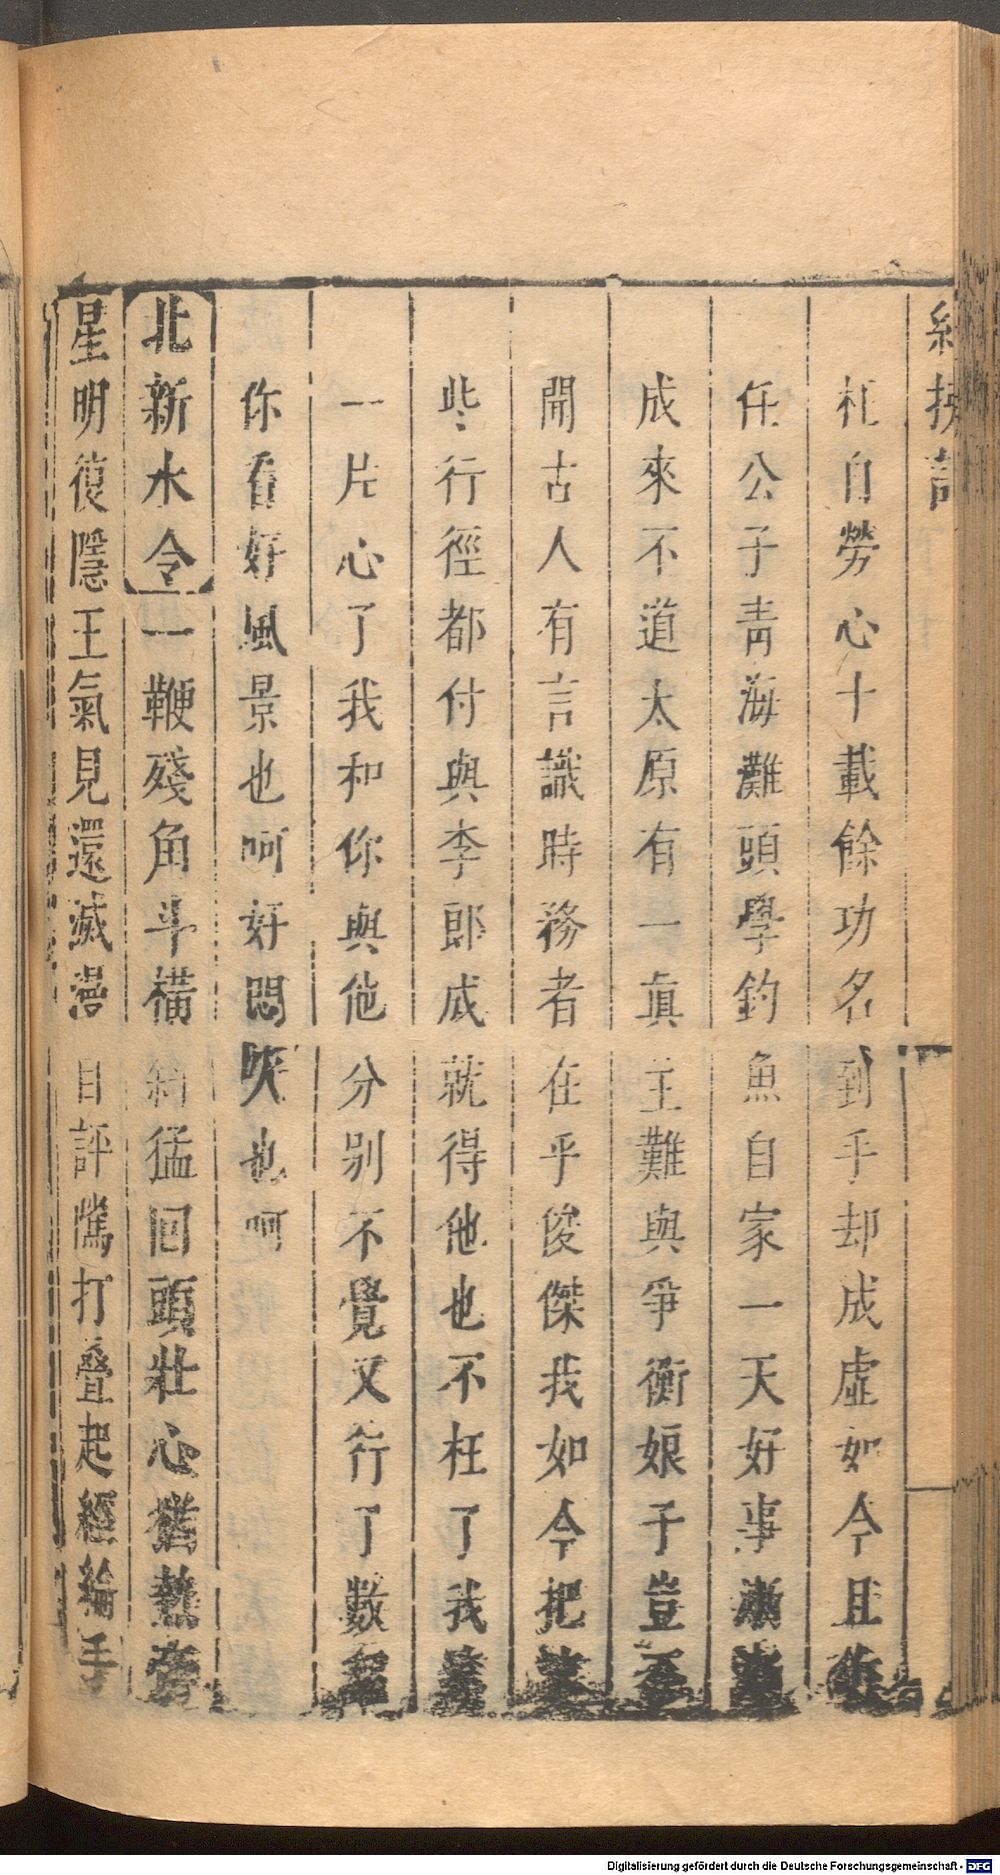 紅拂記
枉自勞心十載餘功名到手却成虛如今且
任公子青海灘頭學釣魚自家一天好事漸漸
成來不道太原有一眞主難與爭衡娘子豈不
開古人有言識時務者在乎俊傑我如今把這
些行徑都付與李郎成就得他也不枉了我這
一片心了我和你與他分別不覺又行了數程
你看好風景也呵好悶人也呵
北新水令一鞭殘角斗橫斜猛回頭壯心猶熱帝
星明復隱王氣見還滅自評打疊起經綸手
Digitalisierung gefördert durch die Deutsche Forschungsgemeinschaft - DFG